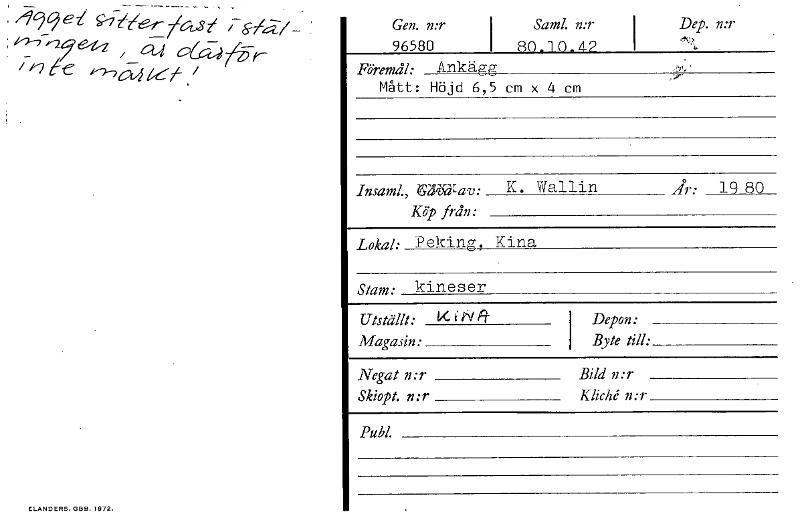 Ägget sitter fast i stäl-
ningen, är därför
inte märkt!
Gen. n:r Saml. n:r Dep. n:r
96580 80.10.42
Föremål: Ankägg
Mått: Höjd 6,5 cm x 4 cm
Insaml., Gåva av: K. Wallin År: 1980
Köp från:
Lokal: Peking, Kina
Stam: kineser
Utställt: KINA Depon:
Magasin: Byte till:
Negat n:r Bild n:r
Skiopt. n:r Kliché n:r
Publ.
ELANDERS, GBG. 1972.